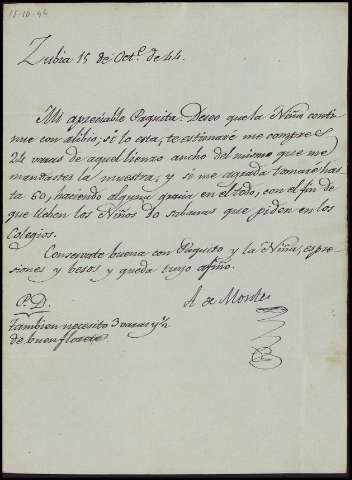 15-10-44
Zubia 15 de Octe. de 44.
Mi apreciable Paquita. Deseo que la Niña conti-
nue con alibio; si lo esta, te estimaré me compres
24 varas de aquel lienzo ancho del mismo que me
mandastes la muestra, y si me agrada tomaré has-
ta 60, haciendo alguna gracia en el todo, con el fin de
que lleben los Niños las sabanas que piden en los
Colegios.
Conservate buena con Paquito y la Niña, espre-
siones y besos y queda tuyo afmo.
A de Montes
P.D.
tambien necesito 3 varas y
de buen florete.